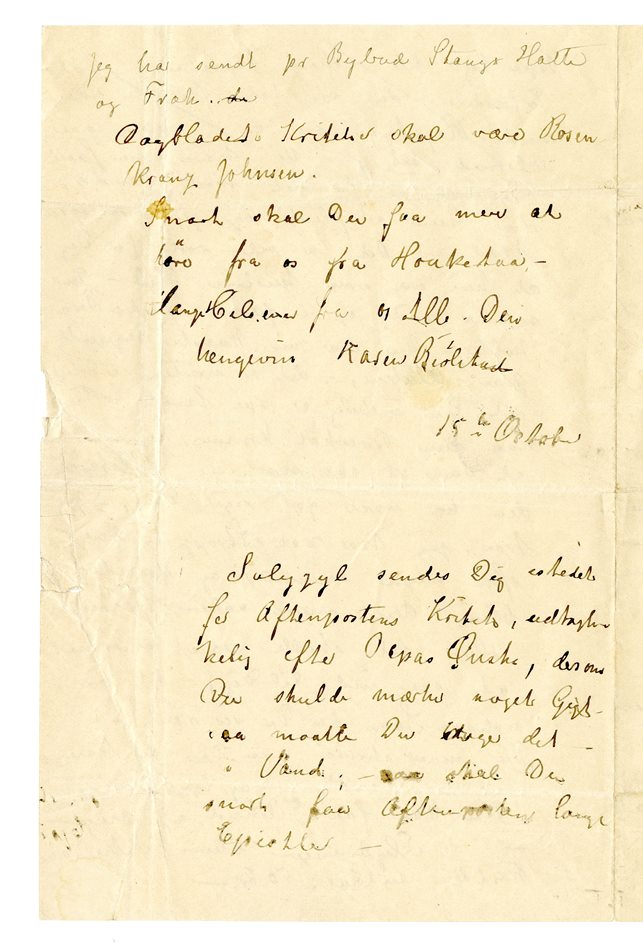 Jeg har sendt pr Bybud Stangs Hatte
og Frak.
Dagbladets Kritiker skal være Rosen
kranz Johnsen.
Snart skal Du faa mer at
höre fra os fra Haukeliaa. –
Mange Hilsener fra os Alle. Din
hengivne Karen Bjölstad
15de October
Salycyl sendes Dig istedet
for Aftenpostens Kritik, udtrykke
kelig efter Papas Önske, dersom
Du skulde mærke noget Gigt –
saa maatte Du tage det –
i Vand; – saa skal Du
snart faa Aftenposten lange
Epistler –